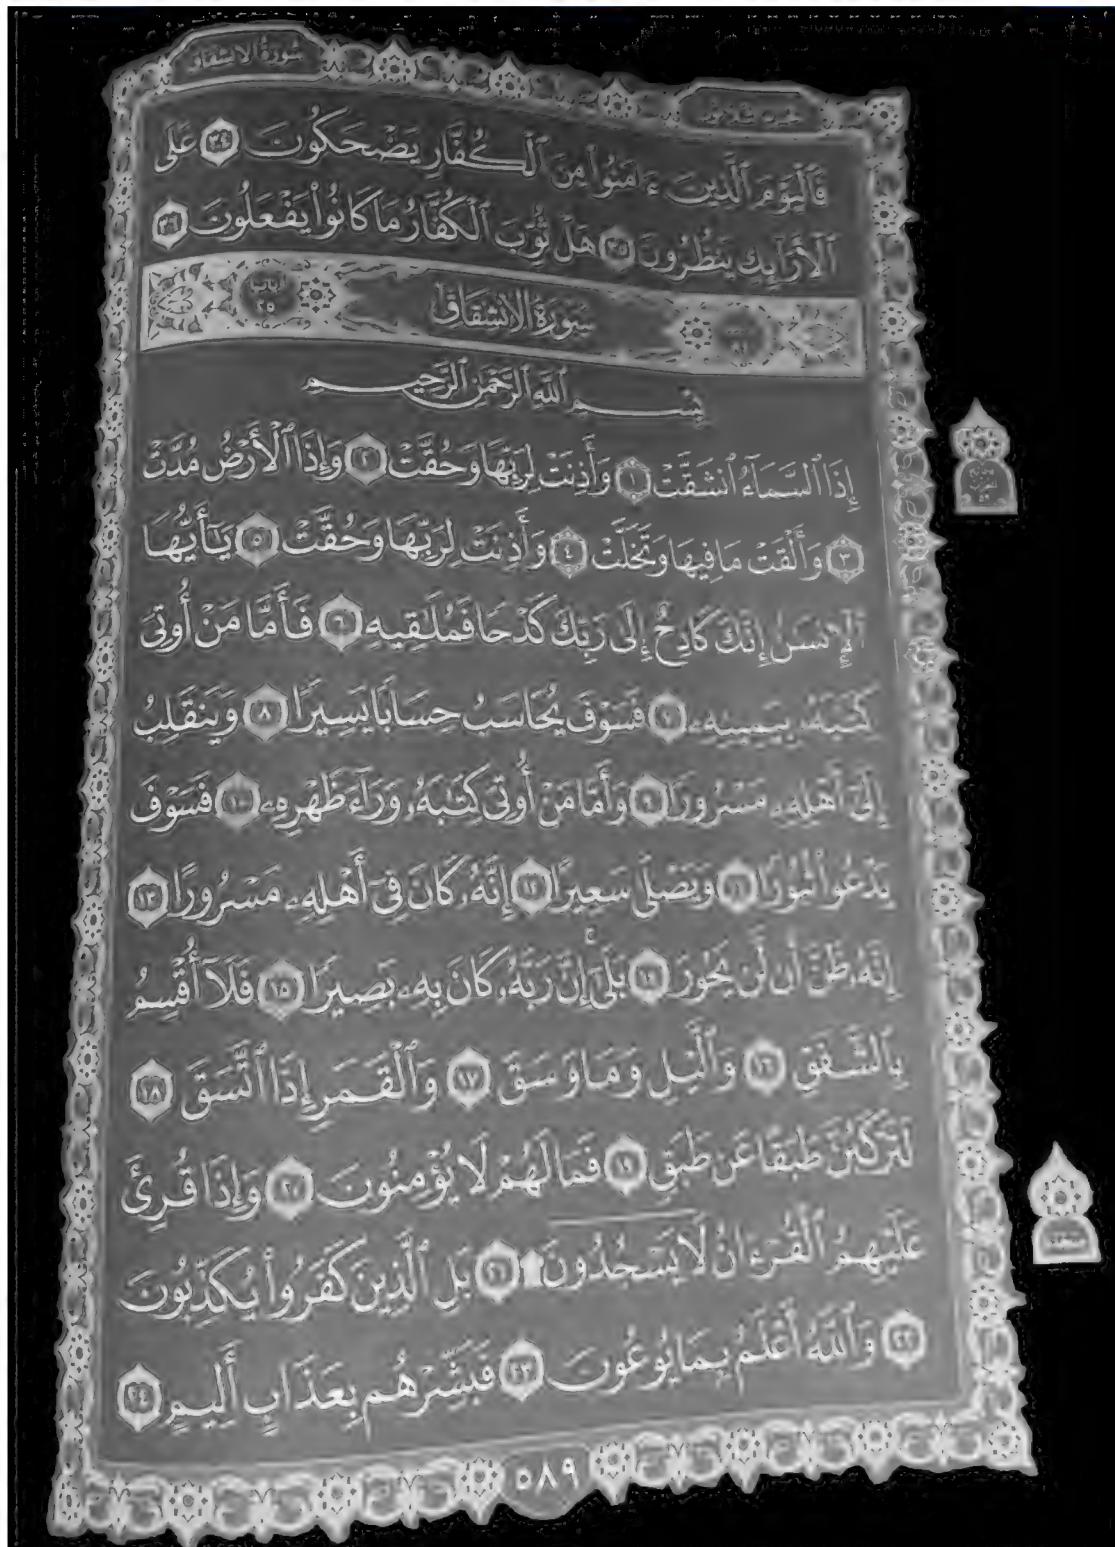 سورة الانشقاق
فَٱلْيَوْمَ ٱلَّذِينَ ءَامَنُوا۟ مِنَ ٱلْكُفَّارِ يَضْحَكُونَ ٣٤ عَلَى
ٱلْأَرَآئِكِ يَنظُرُونَ ٣٥ هَلْ ثُوِّبَ ٱلْكُفَّارُ مَا كَانُوا۟ يَفْعَلُونَ ٣٦
سُورَةُ الانشِقَاقِ
بِسْمِ ٱللَّهِ ٱلرَّحْمَٰنِ ٱلرَّحِيمِ
إِذَا ٱلسَّمَآءُ ٱنشَقَّتْ ١ وَأَذِنَتْ لِرَبِّهَا وَحُقَّتْ ٢ وَإِذَا ٱلْأَرْضُ مُدَّتْ
٣ وَأَلْقَتْ مَا فِيهَا وَتَخَلَّتْ ٤ وَأَذِنَتْ لِرَبِّهَا وَحُقَّتْ ٥ يَٰٓأَيُّهَا
ٱلْإِنسَٰنُ إِنَّكَ كَادِحٌ إِلَىٰ رَبِّكَ كَدْحًا فَمُلَٰقِيهِ ٦ فَأَمَّا مَنْ أُوتِىَ
كِتَٰبَهُۥ بِيَمِينِهِۦ ٧ فَسَوْفَ يُحَاسَبُ حِسَابًا يَسِيرًا ٨ وَيَنقَلِبُ
إِلَىٰٓ أَهْلِهِۦ مَسْرُورًا ٩ وَأَمَّا مَنْ أُوتِىَ كِتَٰبَهُۥ وَرَآءَ ظَهْرِهِۦ ١٠ فَسَوْفَ
يَدْعُوا۟ ثُبُورًا ١١ وَيَصْلَىٰ سَعِيرًا ١٢ إِنَّهُۥ كَانَ فِىٓ أَهْلِهِۦ مَسْرُورًا ١٣
إِنَّهُۥ ظَنَّ أَن لَّن يَحُورَ ١٤ بَلَىٰٓ إِنَّ رَبَّهُۥ كَانَ بِهِۦ بَصِيرًا ١٥ فَلَآ أُقْسِمُ
بِٱلشَّفَقِ ١٦ وَٱلَّيْلِ وَمَا وَسَقَ ١٧ وَٱلْقَمَرِ إِذَا ٱتَّسَقَ ١٨
لَتَرْكَبُنَّ طَبَقًا عَن طَبَقٍ ١٩ فَمَا لَهُمْ لَا يُؤْمِنُونَ ٢٠ وَإِذَا قُرِئَ
عَلَيْهِمُ ٱلْقُرْءَانُ لَا يَسْجُدُونَ ۩ ٢١ بَلِ ٱلَّذِينَ كَفَرُوا۟ يُكَذِّبُونَ
٢٢ وَٱللَّهُ أَعْلَمُ بِمَا يُوعُونَ ٢٣ فَبَشِّرْهُم بِعَذَابٍ أَلِيمٍ ٢٤
٥٨٩